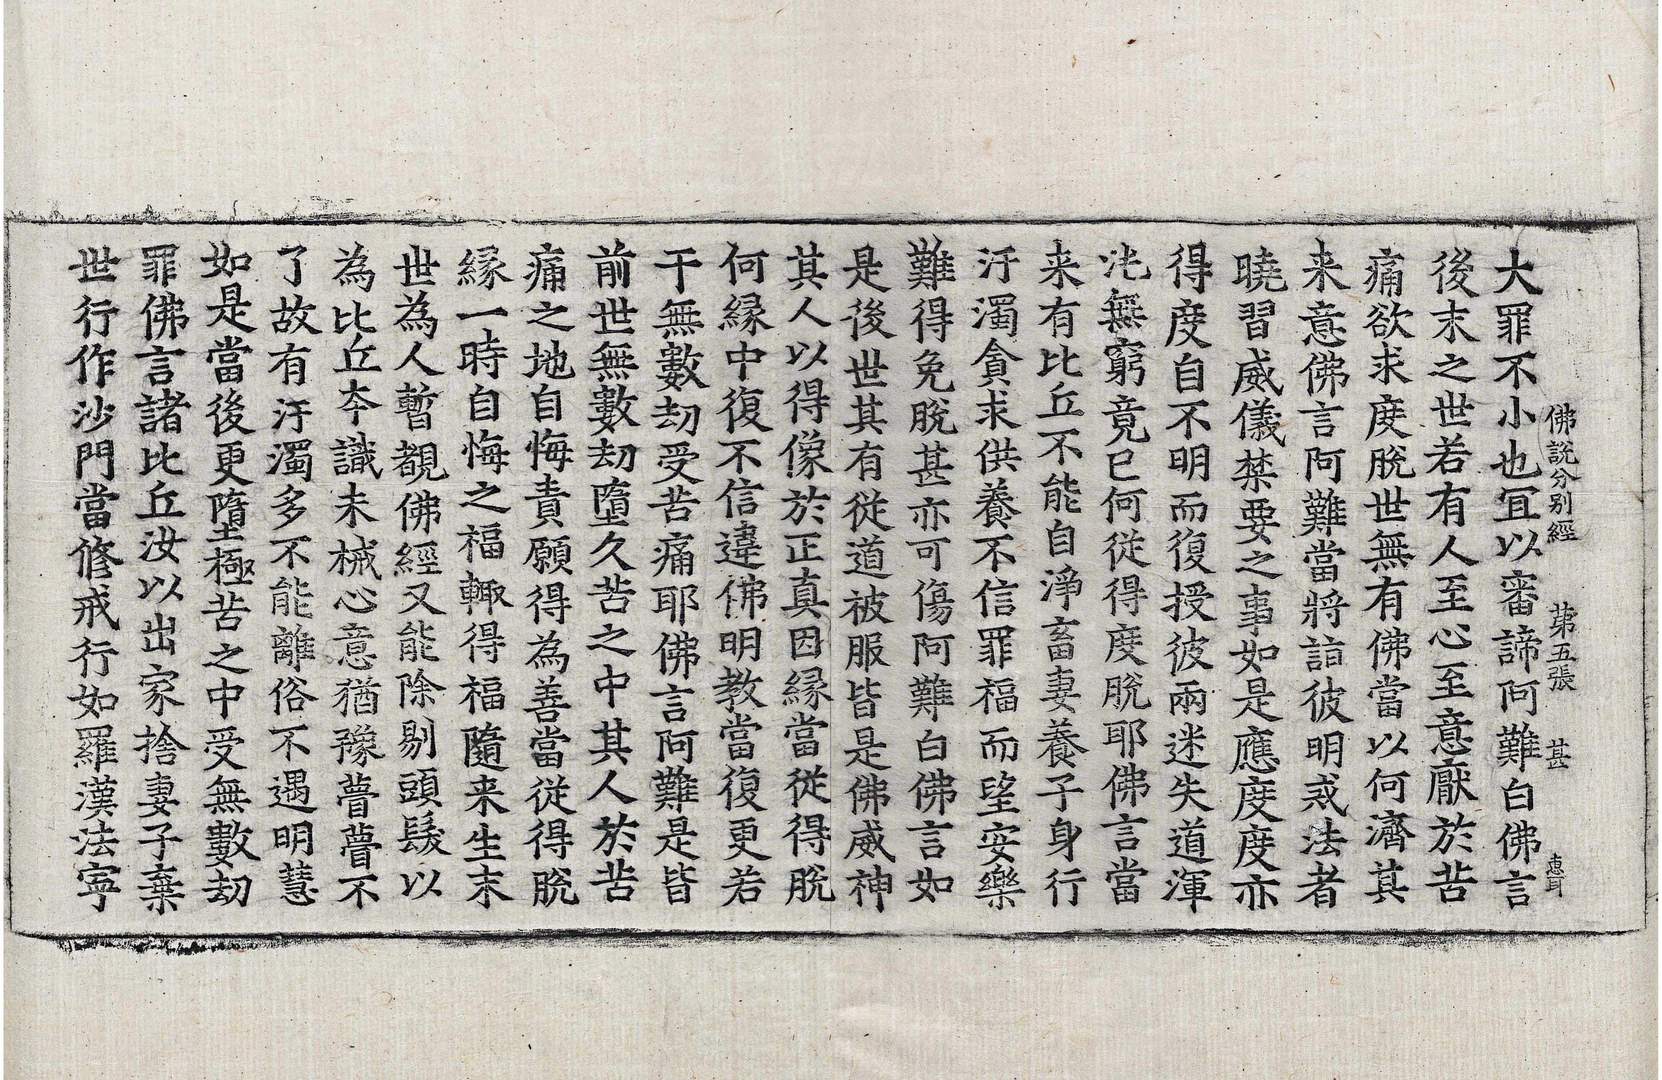 佛說分別經 第五張 甚 惠耳
大罪不小也宜以審諦阿難白佛言
後末之世若有人至心至意厭於苦
痛欲求度脫世無有佛當以何濟其
来意佛言阿難當將詣彼明戒法者
曉習威儀禁要之事如是應度度亦
得度自不明而復授彼兩迷失道渾
沌無窮竟已何從得度脫耶佛言當
来有比丘不能自淨畜妻養子身行
汙濁貪求供養不信罪福而望安樂
難得免脫甚亦可傷阿難白佛言如
是後世其有從道被服皆是佛威神
其人以得像於正真因緣當從得脫
何緣中復不信違佛明教當復更若
干無數劫受苦痛耶佛言阿難是皆
前世無數劫墮久苦之中其人於苦
痛之地自悔責願得為善當從得脫
緣一時自悔之福輙得福隨来生末
世為人暫覩佛經又能除剔頭髮以
為比丘夲識未械心意猶豫瞢瞢不
了故有汙濁多不能離俗不遇明慧
如是當後更墮極苦之中受無數劫
罪佛言諸比丘汝以出家捨妻子棄
世行作沙門當修戒行如羅漢法寧